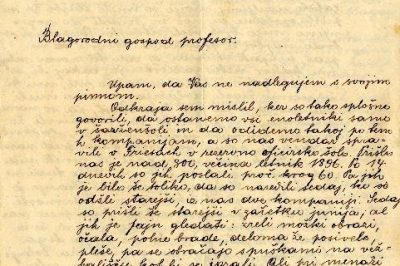 Blagorodni gospod profesor.
Upam, da Vas ne nadlegujem s svojim
pismom.
Odkraja sem mislil, ker so tako splošno
govorili, da ostanemo vsi enoletniki samo
v šarži in da odidemo takoj po tem
h kompanijam, a so nas vendar spra-
vili v v reservno oficirsko šolo. Prišlo
nas je nad 300, večina letnik 1896. Po 14
dneh so jih poslali proč krog 60. Pa jih
je bilo še toliko, da so naredili sedaj, ko so
odšli starejši, iz nas dve kompaniji. Sedaj
so prišli še starejši v začetku junija, a
jih je fajn gledati: zreli možki obrazi,
očala, polne brade, deloma že posiveli,
pleše, pa se obračajo
se igrali. Ali pri menaži